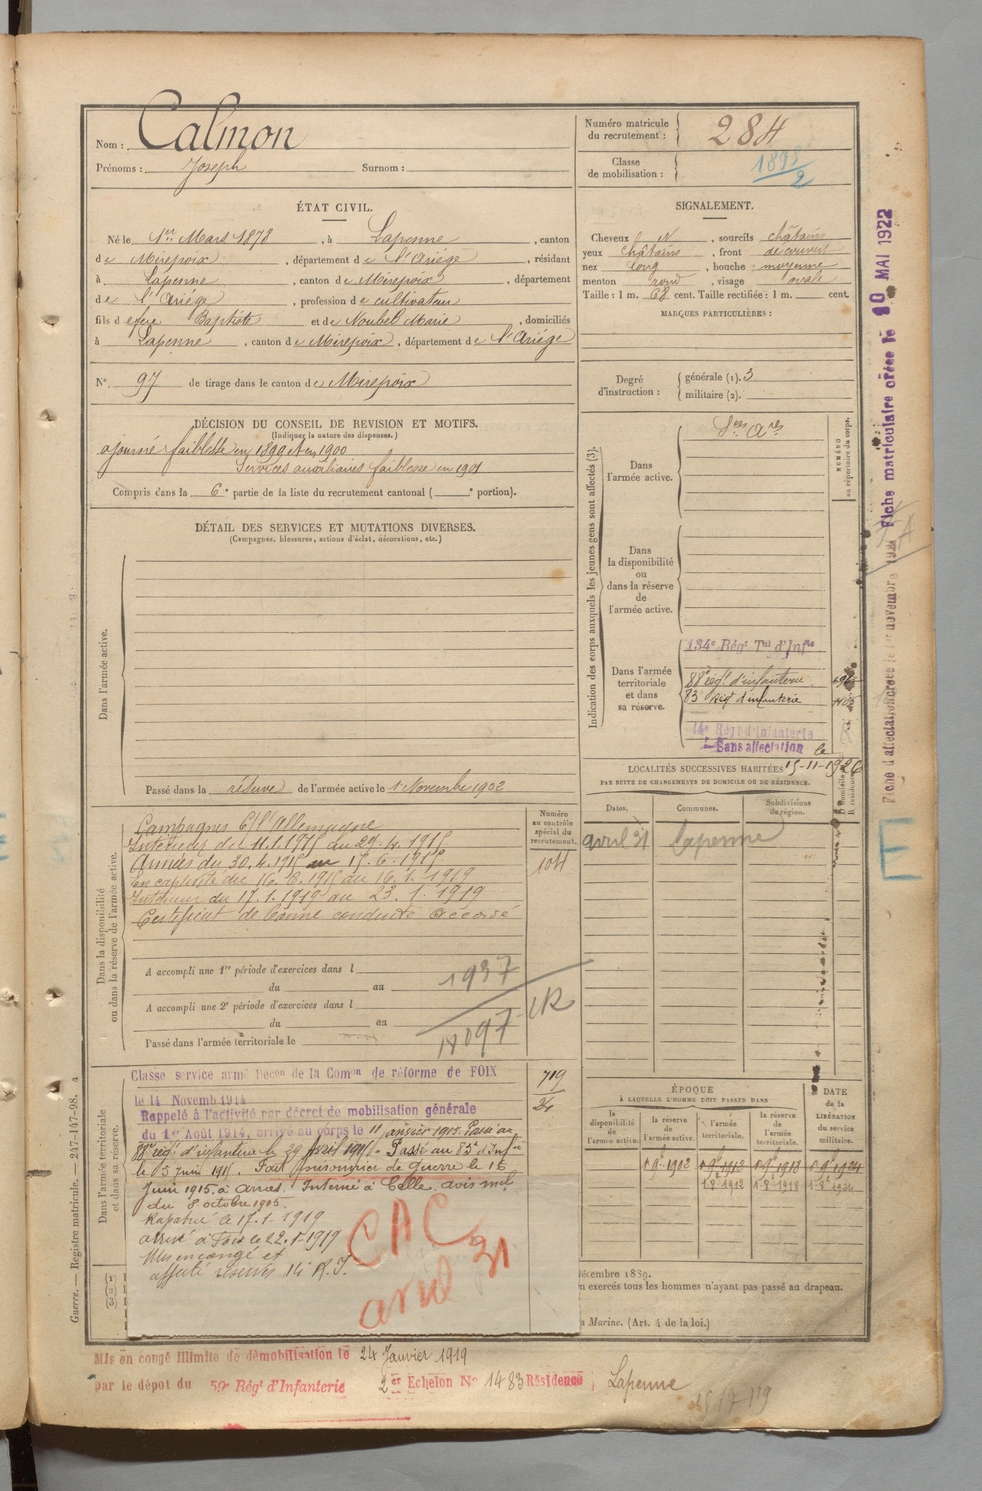 Nom : Calmon
Prénoms : Joseph Surnom :
Numéro matricule
du recrutement : 284
Classe
de mobilisation : 1898
2
ÉTAT CIVIL.
Né le 1er Mars 1878, à Lapenne, canton
de Mirepoix, département de l'Ariège, résidant
à Lapenne, canton de Mirepoix, département
de l'Ariège, profession de cultivateur
fils de feu Baptiste et de Noubel Marie, domiciliés
à Lapenne, canton de Mirepoix, département de l'Ariège
N° 97 de tirage dans le canton de Mirepoix
SIGNALEMENT.
Cheveux N, sourcils châtains
yeux châtains, front découvert
nez long, bouche moyenne
menton rond, visage ovale
Taille : 1 m. 68 cent. Taille rectifiée : 1 m. cent.
MARQUES PARTICULIÈRES :
Degré
d'instruction : générale (1). 3
militaire (2).
DÉCISION DU CONSEIL DE REVISION ET MOTIFS.
(Indiquez la nature des dispenses.)
ajourné faiblesse en 1899 et en 1900
Services auxiliaires faiblesse en 1901
Compris dans la 6e partie de la liste du recrutement cantonal ( e portion).
DÉTAIL DES SERVICES ET MUTATIONS DIVERSES.
(Campagnes, blessures, actions d'éclat, décorations, etc.)
Dans l'armée active.
Passé dans la réserve de l'armée active le 1 Novembre 1902
Indication des corps auxquels les jeunes gens sont affectés (3).
NUMÉRO
au répertoire du corps.
Dans
l'armée active.
Sces Ares
Dans
la disponibilité
ou
dans la réserve
de
l'armée active.
Dans l'armée
territoriale
et dans
sa réserve.
134e Régt Tal d'Infie
88e régt d'infanterie
83e Régt d'infanterie
14e Régt d'Infanterie
Sans affectation le
15-11-1926
LOCALITÉS SUCCESSIVES HABITÉES
PAR SUITE DE CHANGEMENTS DE DOMICILE OU DE RÉSIDENCE.
Dates. Communes. Subdivisions
de région.
avril 31 Lapenne
Dans la disponibilité
ou dans la réserve de l'armée active.
Numéro
au contrôle
spécial du
recrutement.
104
Campagnes C/ l'Allemagne
Intérieur du 11.1.1915 au 29.4.1915
Armées du 30.4.1915 au 15.6.1915
En captivité du 16.6.1915 au 16.1.1919
Intérieur du 17.1.1919 au 23.1.1919
Certificat de bonne conduite accordé
A accompli une 1re période d'exercices dans l
du au
A accompli une 2e période d'exercices dans l
du au
Passé dans l'armée territoriale le
1937
Dans l'armée territoriale
et dans sa réserve.
Classe service armé Décon de la Comon de réforme de FOIX
le 14 Novemb 1914
Rappelé à l'activité par décret de mobilisation générale
du 1er Août 1914, arrivé au corps le 11 janvier 1915. Passé au
88e régt d'infanterie le 29 avril 1915. Passé au 83e d'Infie
le 15 Juin 1915. Fait prisonnier de guerre le 16
Juin 1915 à Arras. Interné à Celle, avis mel
du 8 octobre 1915.
Rapatrié le 17.1.1919
arrivé à Foix le 22.1.1919
Mis en congé et
affecté réserves 14 R.I.
719
24
CAC
avril 31
ÉPOQUE
À LAQUELLE L'HOMME DOIT PASSER DANS
la
disponibilité
de
l'armée active.
la réserve
de
l'armée active.
l'armée
territoriale.
la réserve
de
l'armée
territoriale.
DATE
de la
LIBÉRATION
du service
militaire.
1 9bre 1902 1 9bre 1912 1 9bre 1918 1 9bre 1924
1.8.1912 1.8.1918 1.8.1924
décembre 1889.
n exercés tous les hommes n'ayant pas passé au drapeau.
Marine. (Art. 4 de la loi.)
Mis en congé illimité de démobilisation le 24 Janvier 1919
par le dépot du 59e Régt d'Infanterie 2er Echelon N° 1483 Résidence, Lapenne
Guerre. — Registre matricule. — 247-147-98.
Fiche matriculaire créée le 10 MAI 1922
Fiche d'affectation créée le 1er novembre 1921
E